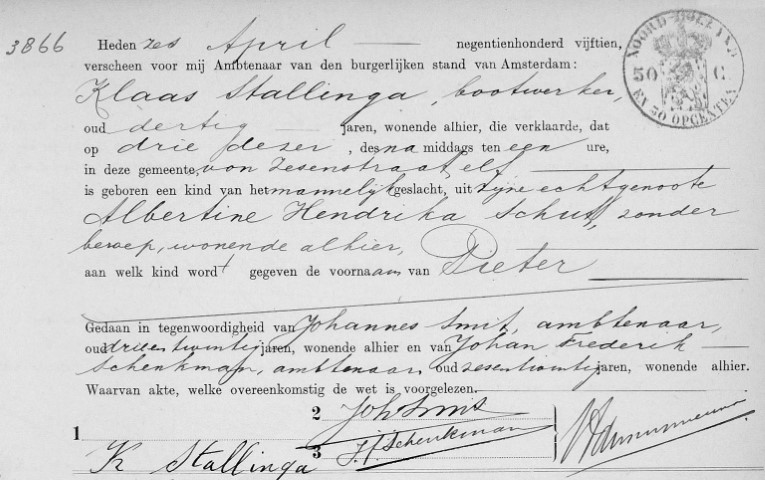 3866
Heden zes April negentienhonderd vijftien,
verscheen voor mij Ambtenaar van den burgerlijken stand van Amsterdam:
Klaas Stallinga, bootwerker,
oud dertig jaren, wonende alhier, die verklaarde, dat
op drie dezer, des namiddags ten een ure,
in deze gemeente, von Zesenstraat elf
is geboren een kind van het mannelijk geslacht, uit zijne echtgenoote
Albertine Hendrika Schut, zonder
beroep, wonende alhier,
aan welk kind wordt gegeven de voornaam van Pieter
Gedaan in tegenwoordigheid van Johannes Smit, ambtenaar,
oud drieentwintig jaren, wonende alhier en van Johan Frederik
Schenkman, ambtenaar, oud zesentwintig jaren, wonende alhier.
Waarvan akte, welke overeenkomstig de wet is voorgelezen.
1 K Stallinga
2 Joh Smit
3 J.f. Schenkman
NOORD-HOLLAND
50 C.
EN 50 OPCENTEN